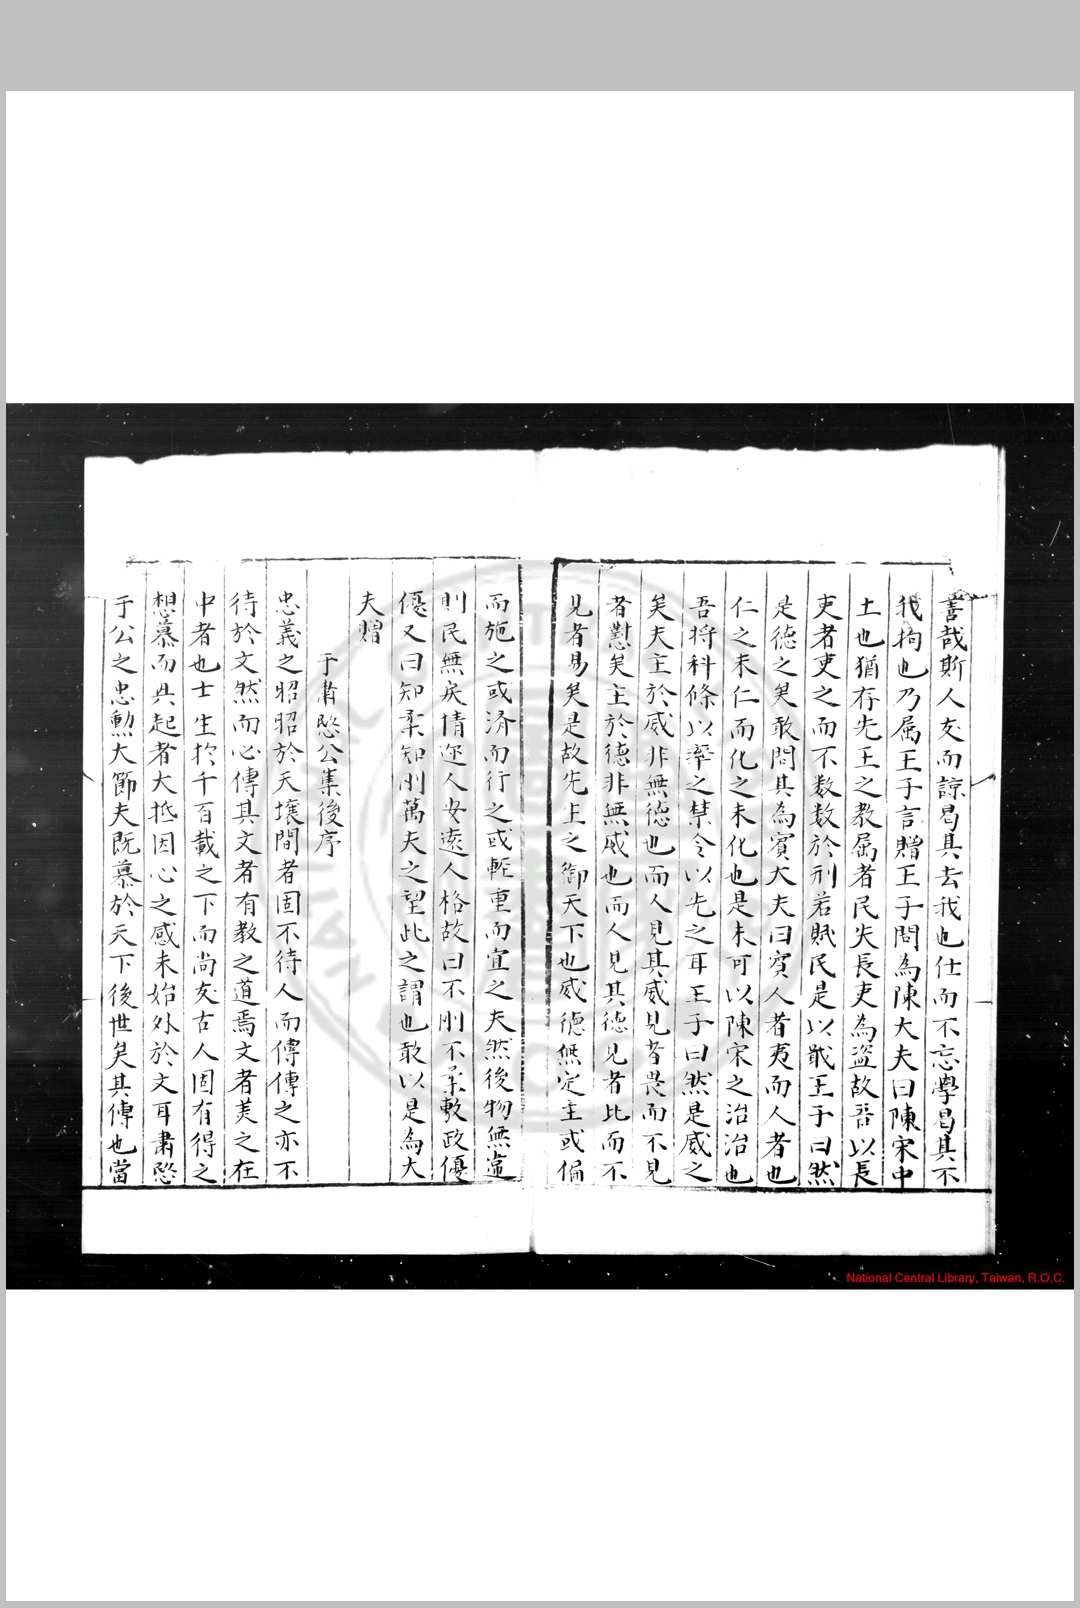 善哉斯人友而諒曷其去我也仕而不忘學曷其不
我拘也乃属王子言贈王子問為陳大夫曰陳宋中
土也猶存先王之教属者民失長吏為盜故吾以長
吏者吏之而不数数於刑若賦民是以戢王子曰然
是德之矣敢問其為賓大夫曰賓人者夷而人者也
仁之未仁而化之未化也是未可以陳宋之治治也
吾將科條以率之禁令以先之耳王子曰然是威之
矣夫主於威非無德也而人見其威見者畏而不見
者懟矣主於德非無威也而人見其德見者比而不
見者易矣是故先王之御天下也威德無定主或偏
而施之或済而行之或輕重而宜之夫然後物無違
則民無戾情迩人安遠人格故曰不刚不柔敷政優
優又曰知柔知刚萬夫之望此之謂也敢以是為大
夫贈
于肅愍公集後序
忠義之昭昭於天壤間者固不待人而傳傳之亦不
待於文然而必傳其文者有教之道焉文者美之在
中者也士生扵千百載之下而尚友古人固有得之
想慕而興起者大抵因心之感未始外於文耳肅愍
于公之忠勲大節夫既慕於天下後世矣其傳也當
National Central Library, Taiwan, R.O.C.